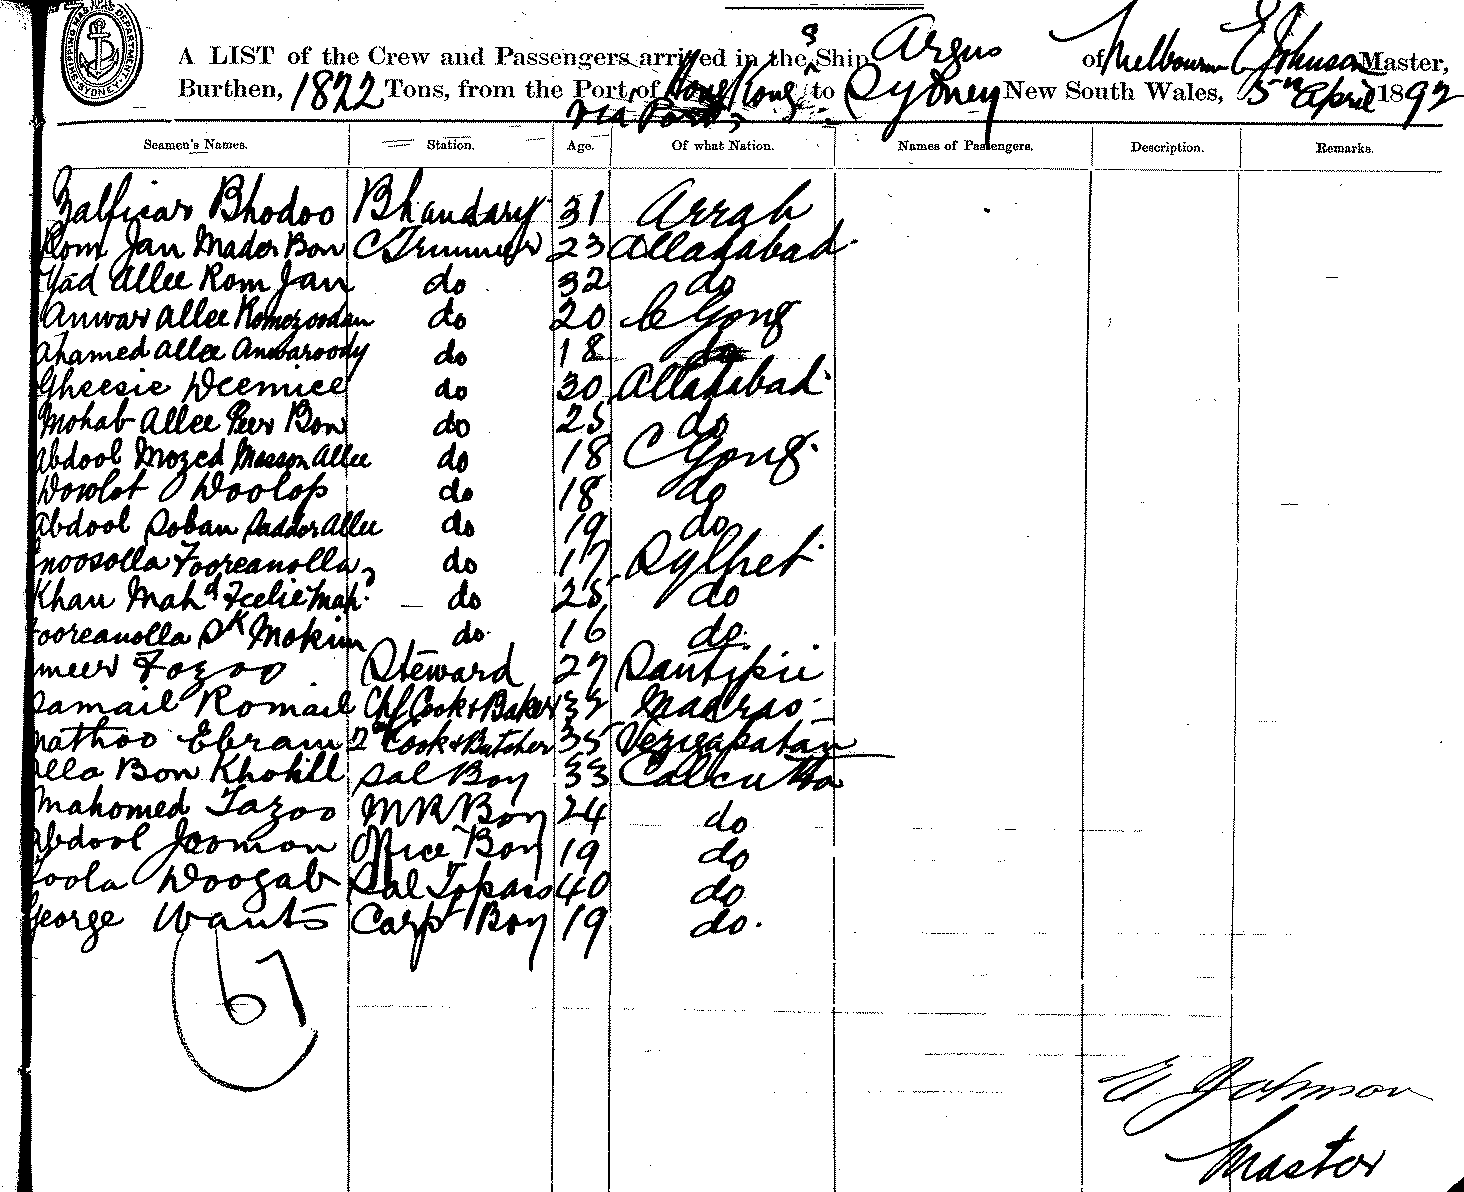 SHIPPING MASTER'S DEPARTMENT SYDNEY
A LIST of the Crew and Passengers arrived in the SS Ship Argus of Melbourne E Johnson Master,
Burthen, 1822 Tons, from the Port of Hong Kong to Sydney New South Wales, 5th April 1892
via Ports
Seamen's Names. Station. Age. Of what Nation. Names of Passengers. Description. Remarks.
Zalficar Bhodoo Bhandary 31 Arrah
Rom Jan Mader Bon C Trimmer 23 Allahabad
Yad Allee Rom Jan do 32 do
Anwar Allee Romozoodan do 20 C Gong
Ahamed Allee Anwaroody do 18 do
Gheesie Deemice do 30 Allahabad
Mohab Allee Peer Bon do 25 do
Abdool Mozed Masson Allee do 18 C Gong
Dowlot Doolop do 18 do
Abdool Soban Saddor Allee do 19 do
noosolla Fooreanolla do 17 Sylhet
Khan Mahd Feelie Mah. do 25 do
ooreanolla Sk Mokim do 16 do
meer Fozoo Steward 27 Santipie
Samail Romail Chf Cook & Baker 32 Madras
nathoo Ebram 2nd Cook & Butcher 35 Vezigapatan
lla Bon Khohill Sal Boy 33 Calcutta
Mahomed Fazoo M R Boy 24 do
Abdool Joomon Office Boy 19 do
oola Doogab Sal Topass 40 do
George Wants Carpt Boy 19 do.
67
E Johnson
Master